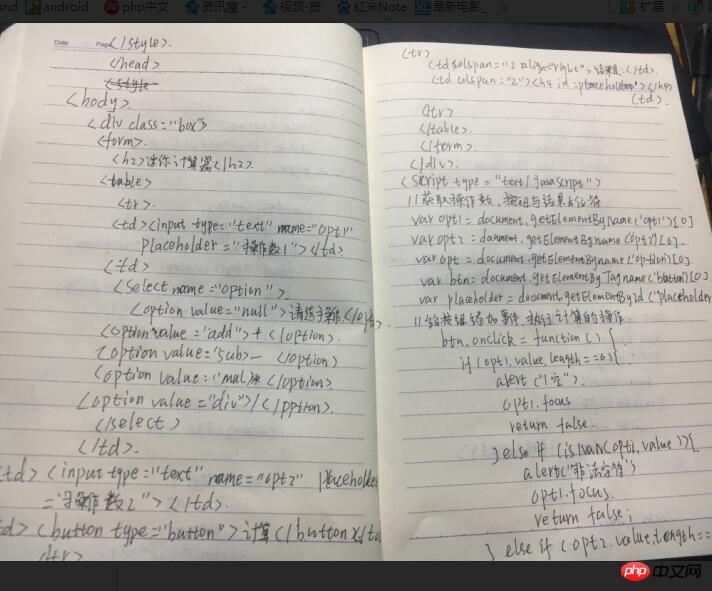 android
php中文
资讯屋
视频-资
红米Note
最新电影_
»
扩展
Date
Page
</style>.
</head>
<style
<body>
<div class="box">
<form>
<h2>迷你计算器</h2>
<table>
<tr>
<td><input type="text" name="opt1"
placeholder="操作数1"></td>
<td>
<select name="option">
<option value="null">请选择操作</opt>
<option value="add">+</option>
<option value="sub>-</option>
<option value="mul>*</option>
<option value="div">/</pption>
</select>
</td>.
td><input type="text" name="opt2" placeholder
="操作数2"></td>
d><button type="button">计算</button></td
</tr>
<tr>
<td colspan="2 align="right">结果是:</td>.
<td colspan="2"><h4 id=placeholder"></h4>
</td>.
</tr>
</table>.
</form>.
</div>.
<script type="text/javascript">
//获取操作数,按钮与结果占位符
var opt1=document.getElementByName('opt1')[0]
var opt2=document.getElementByname('opt2')[0].
var opt=document.getElementByname('option)[0].
var btn=document.getElementByTagname('button)[0].
var placeholder=document.getElementById("placeholder
//给按钮添加事件,执行计算的操作.
btn.onclick=function(){
if(opt1.value.length==0){
alert("1空").
opt1.focus
return false.
}else if(isNaN(opt1.value)){
alert("非法字符")
opt1.focus.
return false;
} else if (opt2.value.length==
php中文网